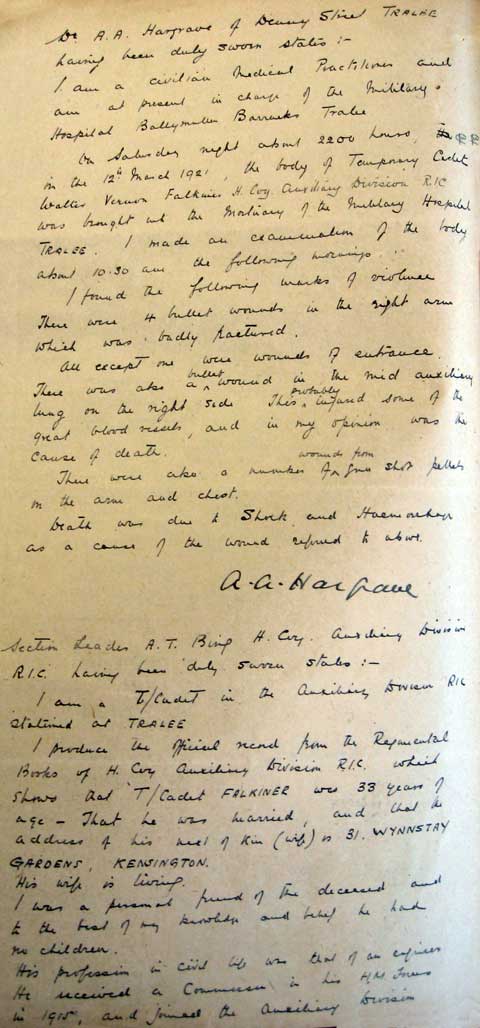 Dr A.A. Hargrave of Denny Street TRALEE
having been duly sworn states :-
I am a civilian Medical Practitioner and
am at present in charge of the Military
Hospital Ballymullen Barracks Tralee
On Saturday night about 2200 hours,
on the 12th March 1921, the body of Temporary Cadet
Walter Vernon Falkiner H. Coy. Auxiliary Division RIC
was brought into the Mortuary of the Military Hospital
TRALEE. I made an examination of the body
about 10.30 am the following morning.
I found the following marks of violence
There were 4 bullet wounds in the right arm
which was badly fractured.
All except one were wounds of entrance.
There was also a bullet wound in the mid auxiliary
lung on the right side This probably injured some of the
great blood vessels, and in my opinion was the
cause of death.
There were also a number of wounds from gun shot pellets
on the arm and chest.
Death was due to Shock and Haemorrhage
as a cause of the wound referred to above.
A.A. Hargrave
Section Leader A.T. Bing H. Coy. Auxiliary Division
R.I.C. having been duly sworn states :-
I am a T/Cadet in the Auxiliary Division RIC
stationed at TRALEE
I produce the official record from the Regimental
Books of H. Coy Auxiliary Division R.I.C. which
shows that T/Cadet FALKINER was 33 years of
age - That he was married, and that the
address of his next of kin (wife) is 31. WYNNSTAY
GARDENS, KENSINGTON.
His wife is living.
I was a personal friend of the deceased and
to the best of my knowledge and belief he had
no children.
His profession in civil life was that of an engineer
He received a Commission in his HM Forces
in 1915, and joined the Auxiliary Division